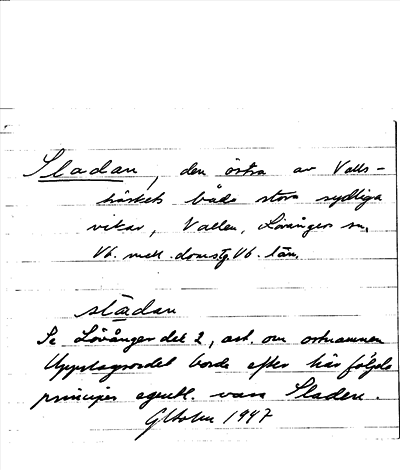 Sladan, den östra av Valls-
träskets båda stora sydliga
vikar, Vallen, Lövångers sn,
Vb. mell. domsg. Vb. län.
slādan
Se Lövånger del 2, avh. om ortnamnen
Uppslagsordet borde efter här följda
principer egentl. vara Sladen.
G Holm 1947